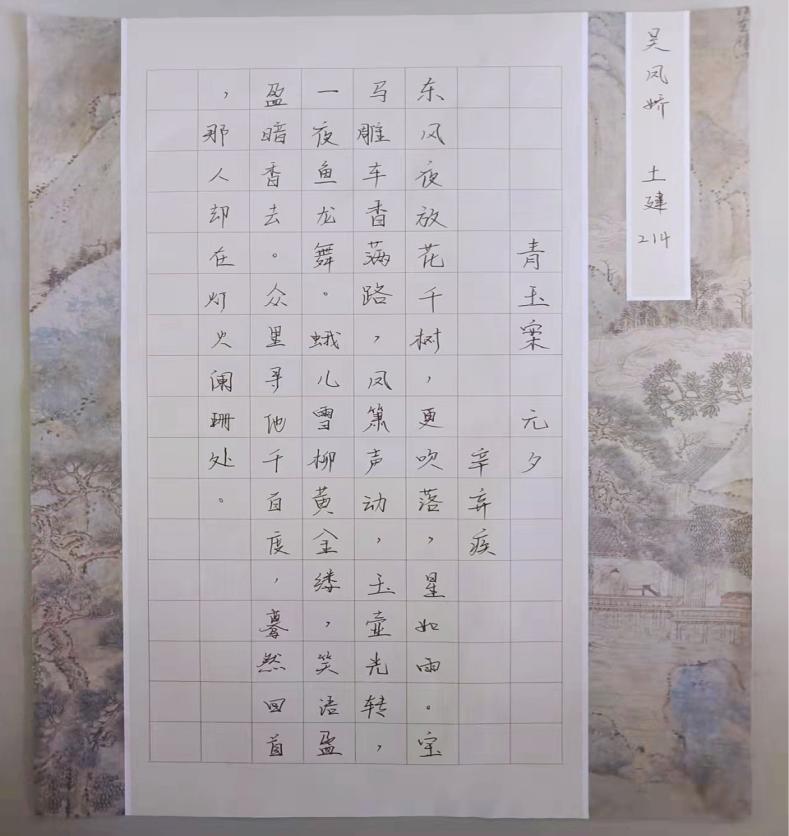 吴凤娇 土建 214
青玉案 元夕
辛弃疾
东风夜放花千树，更吹落，星如雨。宝
马雕车香满路，凤箫声动，玉壶光转，
一夜鱼龙舞。蛾儿雪柳黄金缕，笑语盈
盈暗香去。众里寻他千百度，蓦然回首
，那人却在灯火阑珊处。